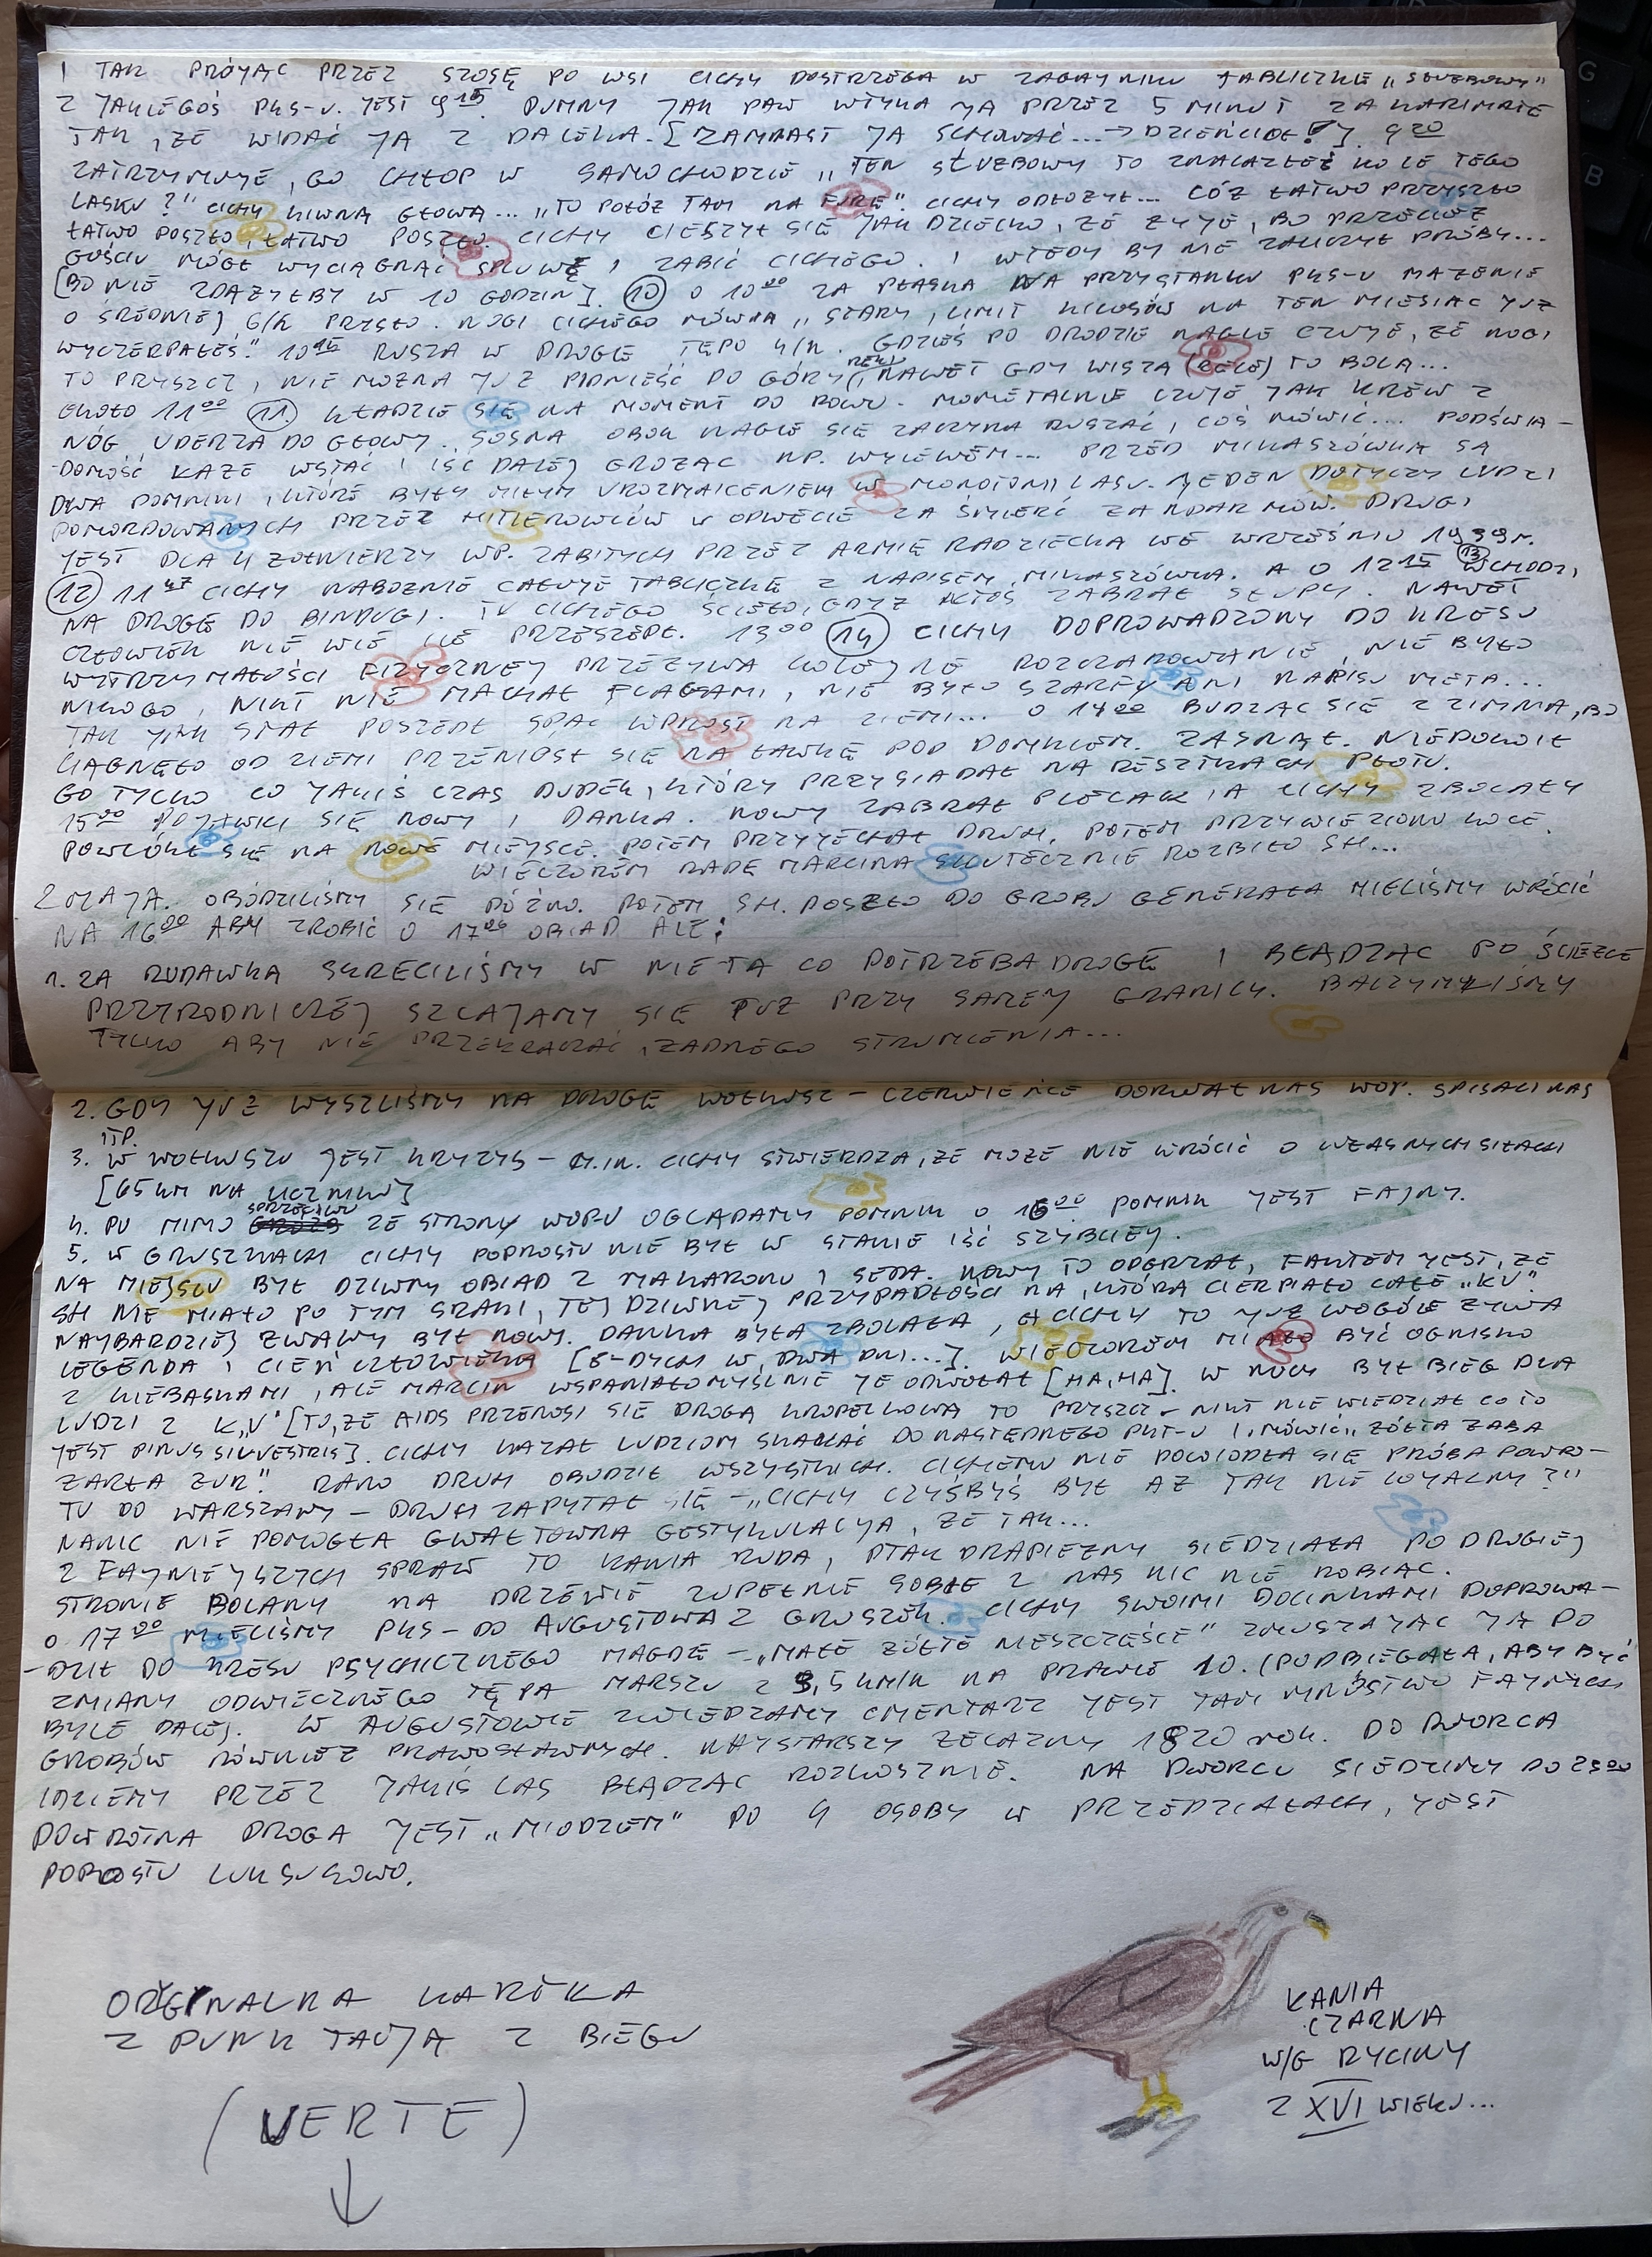 I TAK PRÓJĄC PRZEZ SZOSĘ PO WSI CICHY DOSTRZEGA W ZAGAJNIKU TABLICZKĘ „SŁUŻBOWY”
Z JAKIEGOŚ PKS-U. JEST 9 15. DUMNY JAK PAW WTYKA JĄ PRZEZ 5 MINUT ZA KARIMATĘ
TAK, ŻE WIDAĆ JĄ Z DALEKA. [ZAMIAST JĄ SCHOWAĆ... → DZIECIOE!]. 9 20
ZATRZYMUJE, GO CHŁOP W SAMOCHODZIE „TEN SŁUŻBOWY TO ZNALAZŁEŚ KOŁE TEGO
LASKU?” CICHY KIWNĄ GŁOWĄ... „TO POŁÓŻ TAM NA FURĘ”. CICHY ODŁOŻYŁ... CÓŻ ŁATWO PRZYSZŁO
ŁATWO POSZŁO, ŁATWO POSZŁO CICHY CIESZYŁ SIĘ JAK DZIECKO, ŻE ŻYJE, BO PRZECIEŻ
GOŚCIU MÓGŁ WYCIĄGNĄĆ SPLUWĘ I ZABIĆ CICHEGO. I WTEDY BY NIE ZALICZYŁ PRÓBY...
[BO NIE ZDĄŻYŁBY W 10 GODZIN]. (10) O 10 00 ZA PŁASKĄ NA PRZYSTANKU PKS-U MAŻENIE
O ŚREDNIEJ 6/H PRYSŁO. NOGI CICHEGO MÓWIĄ „STARY, LIMIT KILOSÓW NA TEN MIESIĄC JUŻ
WYCZERPAŁEŚ.” 10 15 RUSZA W DROGĘ TĘPO 4/H. GDZIEŚ PO DRODZE NAGLE CZUJE, ŻE NOGI
TO PRYSZCZ, NIE MOŻNA JUŻ PODNIEŚĆ DO GÓRY RĘKI, NAWET GDY WISZĄ (RĘCE) TO BOLĄ...
OKOŁO 11 00 (11) KŁADZIE SIĘ NA MOMENT DO ROWU. MOMĘTALNIE CZUJE JAK KREW Z
NÓG UDERZA DO GŁOWY. SOSNA OBOK NAGLE SIĘ ZACZYNA RUSZAĆ, COŚ MÓWIĆ... PODŚWIA-
-DOMOŚĆ KAŻE WSTAĆ I IŚĆ DALEJ GROŻĄC NP. WYLEWEM... PRZED MIKASZÓWKĄ SĄ
DWA POMNIKI, KTÓRE BYŁY MIŁYM UROZMAICENIEM W MONOTONII LASU. JEDEN DOTYCZY LUDZI
POMORDOWANYCH PRZEZ HITLEROWCÓW W ODWECIE ZA ŚMIERĆ ŻANDARMÓW. DRUGI
JEST DLA 4 ŻOŁNIERZY WP. ZABITYCH PRZEZ ARMIĘ RADZIECKĄ WE WRZEŚNIU 1939 r.
(12) 11 47 CICHY NABOŻNIE CAŁUJE TABLICZKĘ Z NAPISEM MIKASZÓWKA. A O 12 15 (13) WCHODZI
NA DROGĘ DO BINDUGI. TU CICHEGO ŚCIĘŁO, GDYŻ KTOŚ ZABRAŁ SŁUPY. NAWET
CZŁOWIEK NIE WIE ILE PRZESZEDŁ. 13 00 (14) CICHY DOPROWADZONY DO KRESU
WYTRZYMAŁOŚCI FIZYCZNEJ PRZEŻYWA KOLEJNE ROZCZAROWANIE, NIE BYŁO
NIKOGO, NIKT NIE MACHAŁ FLAGAMI, NIE BYŁO SZARFY ANI NAPISU META...
TAK JAK STAŁ POSZEDŁ SPAĆ WPROST NA ZIEMI... O 14 00 BUDZĄC SIĘ Z ZIMNA, BO
CIĄGNĘŁO OD ZIEMI PRZENIÓSŁ SIĘ NA ŁAWKĘ POD DOMKIEM. ZASNĄŁ. NIEPOKOIŁ
GO TYLKO CO JAKIŚ CZAS DUDEK, KTÓRY PRZYSIADAŁ NA RESZTKACH PŁOTU.
15 00 POJAWILI SIĘ NOWY I DANKA. NOWY ZABRAŁ PLECAK, A CICHY ZBOLAŁY
POWLÓKŁ SIĘ NA NOWE MIEJSCE. POTEM PRZYJECHAŁ DRUH, POTEM PRZYWIEZIONO KOCE.
WIECZOREM RADĘ MARCINA SKUTECZNIE ROZBIŁO SH...
2 MAJA. OBÓDZILIŚMY SIĘ PÓŹNO. POTEM SH. POSZŁO DO GROBU GENERAŁA MIELIŚMY WRÓCIĆ
NA 16 00 ABY ZROBIĆ O 17 00 OBIAD ALE:
1. ZA RUDAWKĄ SKRĘCILIŚMY W NIE TĄ CO POTRZEBA DROGĘ I BŁĄDZĄC PO ŚCIEŻCE
PRZYRODNICZEJ SZLAJAMY SIĘ TUŻ PRZY SAMEJ GRANICY. BACZYMYLIŚMY
TYLKO ABY NIE PRZEKRACZAĆ ŻADNEGO STRUMIENIA...
2. GDY JUŻ WYSZLIŚMY NA DROGĘ WOŁKUSZ – CZERWIEŃCE DORWAŁ NAS WOP. SPISALI NAS
ITP.
3. W WOŁKUSZU JEST KRYZYS – M.IN. CICHY STWIERDZA, ŻE MOŻE NIE WRÓCIĆ O WŁASNYCH SIŁACH
[65 KM NA LICZNIKU]
4. PU MIMO SPRZECIWU ZE STRONY WOPU OGLĄDAMY POMNIK O 16 00 POMNIK JEST FAJNY.
5. W GRUSZKACH CICHY POPROSTU NIE BYŁ W STANIE IŚĆ SZYBCIEJ.
NA MIEJSCU BYŁ DZIWNY OBIAD Z MAKARONU I SERA. NOWY TO ODGRZAŁ, FAKTEM JEST, ŻE
SH NIE MIAŁO PO TYM SRAKI, TEJ DZIWNEJ PRZYPADŁOŚCI NA, KTÓRĄ CIERPIAŁO CAŁE „KV”.
NAJBARDZIEJ ŻWAWY BYŁ NOWY. DANKA BYŁA ZBOLAŁA, A CICHY TO JUŻ WOGÓLE ŻYWA
LEGENDA I CIEŃ CZŁOWIEKA [6-DYCH W DWA DNI...]. WIECZOREM MIAŁO BYĆ OGNISKO
Z KIEBASKAMI, ALE MARCIN WSPANIAŁOMYŚLNIE JE ODWOŁAŁ [HA, HA]. W NOCY BYŁ BIEG DLA
LUDZI Z K„V” [TO, ŻE AIDS PRZENOSI SIĘ DROGĄ KROPELKOWĄ TO PRYSZCZ – NIKT NIE WIEDZIAŁ CO TO
JEST PINUS SILVESTRIS]. CICHY KAZAŁ LUDZIOM SKAKAĆ DO NASTĘPNEGO PKT-U I MÓWIĆ „ŻÓŁTA ŻABA
ŻARŁA ŻUR”. RANO DRUH OBUDZIŁ WSZYSTKICH. CICHEMU NIE POWIODŁA SIĘ PRÓBA POWRO-
TU DO WARSZAWY – DRUH ZAPYTAŁ SIĘ – „CICHY CZYŚBYŚ BYŁ AŻ TAK NIE LOYALNY?”
NANIC NIE POMOGŁA GWAŁTOWNA GESTYKULACJA, ŻE TAK...
Z FAJNIEJSZYCH SPRAW TO KANIA RUDA, PTAK DRAPIEŻNY SIEDZIAŁA PO DRUGIEJ
STRONIE POLANY NA DRZEWIE ZUPEŁNIE SOBIE Z NAS NIC NIE ROBIĄC.
O 17 00 MIELIŚMY PKS – DO AUGUSTOWA Z GRUSZEK. CICHY SWOIMI DOCINKAMI DOPROWA-
-DZIŁ DO KRESU PSYCHICZNEGO MAGDĘ – „MAŁE ŻÓŁTE NIESZCZĘŚCIE” ZMUSZAJĄC JĄ DO
ZMIANY ODWIECZNEGO TĘPA MARSZU Z 3,5 KM/H NA PRAWIE 10. (PODBIEGAŁA, ABY BYĆ
BYLE DALEJ. W AUGUSTOWIE ZWIEDZAMY CMENTARZ JEST TAM MNÓSTWO FAJNYCH
GROBÓW RÓWNIEŻ PRAWOSŁAWNYCH. NAJSTARSZY ŻELAZNY 1820 rok. DO DWORCA
IDZIEMY PRZEZ JAKIŚ LAS BŁĄDZĄC ROZKOSZNIE. NA DWORCU SIEDZIMY DO 23 00
POWROTNA DROGA JEST „MIODZEM” PO 4 OSOBY W PRZEDZIAŁACH, JEST
POPROSTU LUKSUSOWO.
ORYGINALNA KARTKA
Z PUNKTACJĄ Z BIEGU
(VERTE)
KANIA
CZARNA
W/G RYCINY
Z XVI WIEKU...